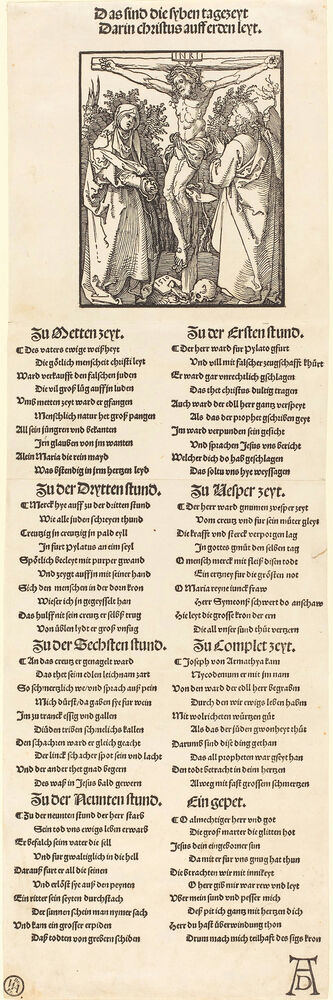 Das sind die syben tagezeyt
Darin christus auff erden leyt.
INRI
Zu Metten zeyt.
Des vaters ewige weißheyt
Die götlich menscheit christi leyt
Ward verkaufft den falschen juden
Die vil groß lüg auff jn luden
Umb metten zeyt ward er gfangen
Menschlich natur het groß pangen
All sein jüngren vnd bekanten
Jm glauben von jm wanten
Alein Maria die rein mayd
Was bstendig in jrm hertzen leyd
Zu der Ersten stund.
Der herr ward fur Pylato gfurt
Vnd vill mit falscher zeugschafft
Er ward gar vnrechtlich gschlagen
Das thet christus dultig tragen
Auch ward der edll herr gantz verspeyt
Als das der prophet gschriben geyt
Jm ward verpunden sein gesicht
Vnd sprachen Jesus vns bericht
Welcher dich do hab geschlagen
Das soltu vns hye weyssagen
Zu der Drytten stund.
Merck hye auff zu der dritten stund
Wie alle juden schreyen thund
Creutzig jn creutzig jn pald eyll
Jn furt Pylatus an ein seyl
Spötlich becleyt mit purper gwand
Vnd zeygt auff jn mit seiner hand
Sich den menschen in der dorn kron
Wie ser ich in gegeysselt han
Das hulff nit sein creutz er selbß trug
Von üblen lydt er groß vnfug
Zu Vesper zeyt.
Der herr ward gnumen zvesper zeyt
Vom creutz vnd fur sein muter gleyt
Die krafft vnd sterck verporgen lag
Jn gottes gmüt den selben tag
O mensch merck mit fleiß disen todt
Ein ertzney fur die grösten not
O Maria reyne junckfraw
Herr Symeons schwert do anschaw
Hie leyt die grosse kron der ern
Die all vnser sund thüt vertzern
Zu der Sechsten stund.
An das creutz er genagelt ward
Das thet sein edlen leichnam zart
So schmertzlich we vnd sprach auß pein
Mich dürst/da gaben sye fur wein
Jm zu tranck essig vnd gallen
Die juden triben schmelichs kallen
Den schachern ward er gleich geacht
Der linck schacher spot sein vnd lacht
Vnd der ander thet gnad begern
Des waß in Jesus bald gewern
Zu Complet zeyt.
Joseph von Armathya kam
Nycodemum er mit jm nam
Von den ward der edll herr begrabn
Durch den wir ewigs leben habm
Mit wolricheten würtzen güt
Als das der juden gwonheyt thüt
Darumb sind dise ding gethan
Das all propheten war gseyt han
Den todt betracht in deim hertzen
Alweg mit fast grossem schmertzen
Zu der Neunten stund.
Zu der neunten stund der herr starb
Sein tod vns ewigs lebm erwarb
Er befalch seim vater die sell
Vnd fur gwaltiglich in die hell
Darauß furt er all die seinen
Vnd erlöst sye auß den peynen
Ein ritter sein seyten durchstach
Der sunnen schein man nymer sach
Vnd kam ein grosser erpiden
Daß todten von grebern schiden
Ein gepet.
O almechtiger herr vnd got
Die groß marter die glitten hot
Jesus dein eingeborner sun
Da mit er fur vns gnug hat thun
Die betrachten wir mit innikeyt
O herr gib mir war rew vnd leyt
Vber mein sund vnd pesser mich
Deß pit ich gantz mit hertzen dich
Herr du hast überwindung thon
Drum mach mich teilhaft des sigs kron
AD